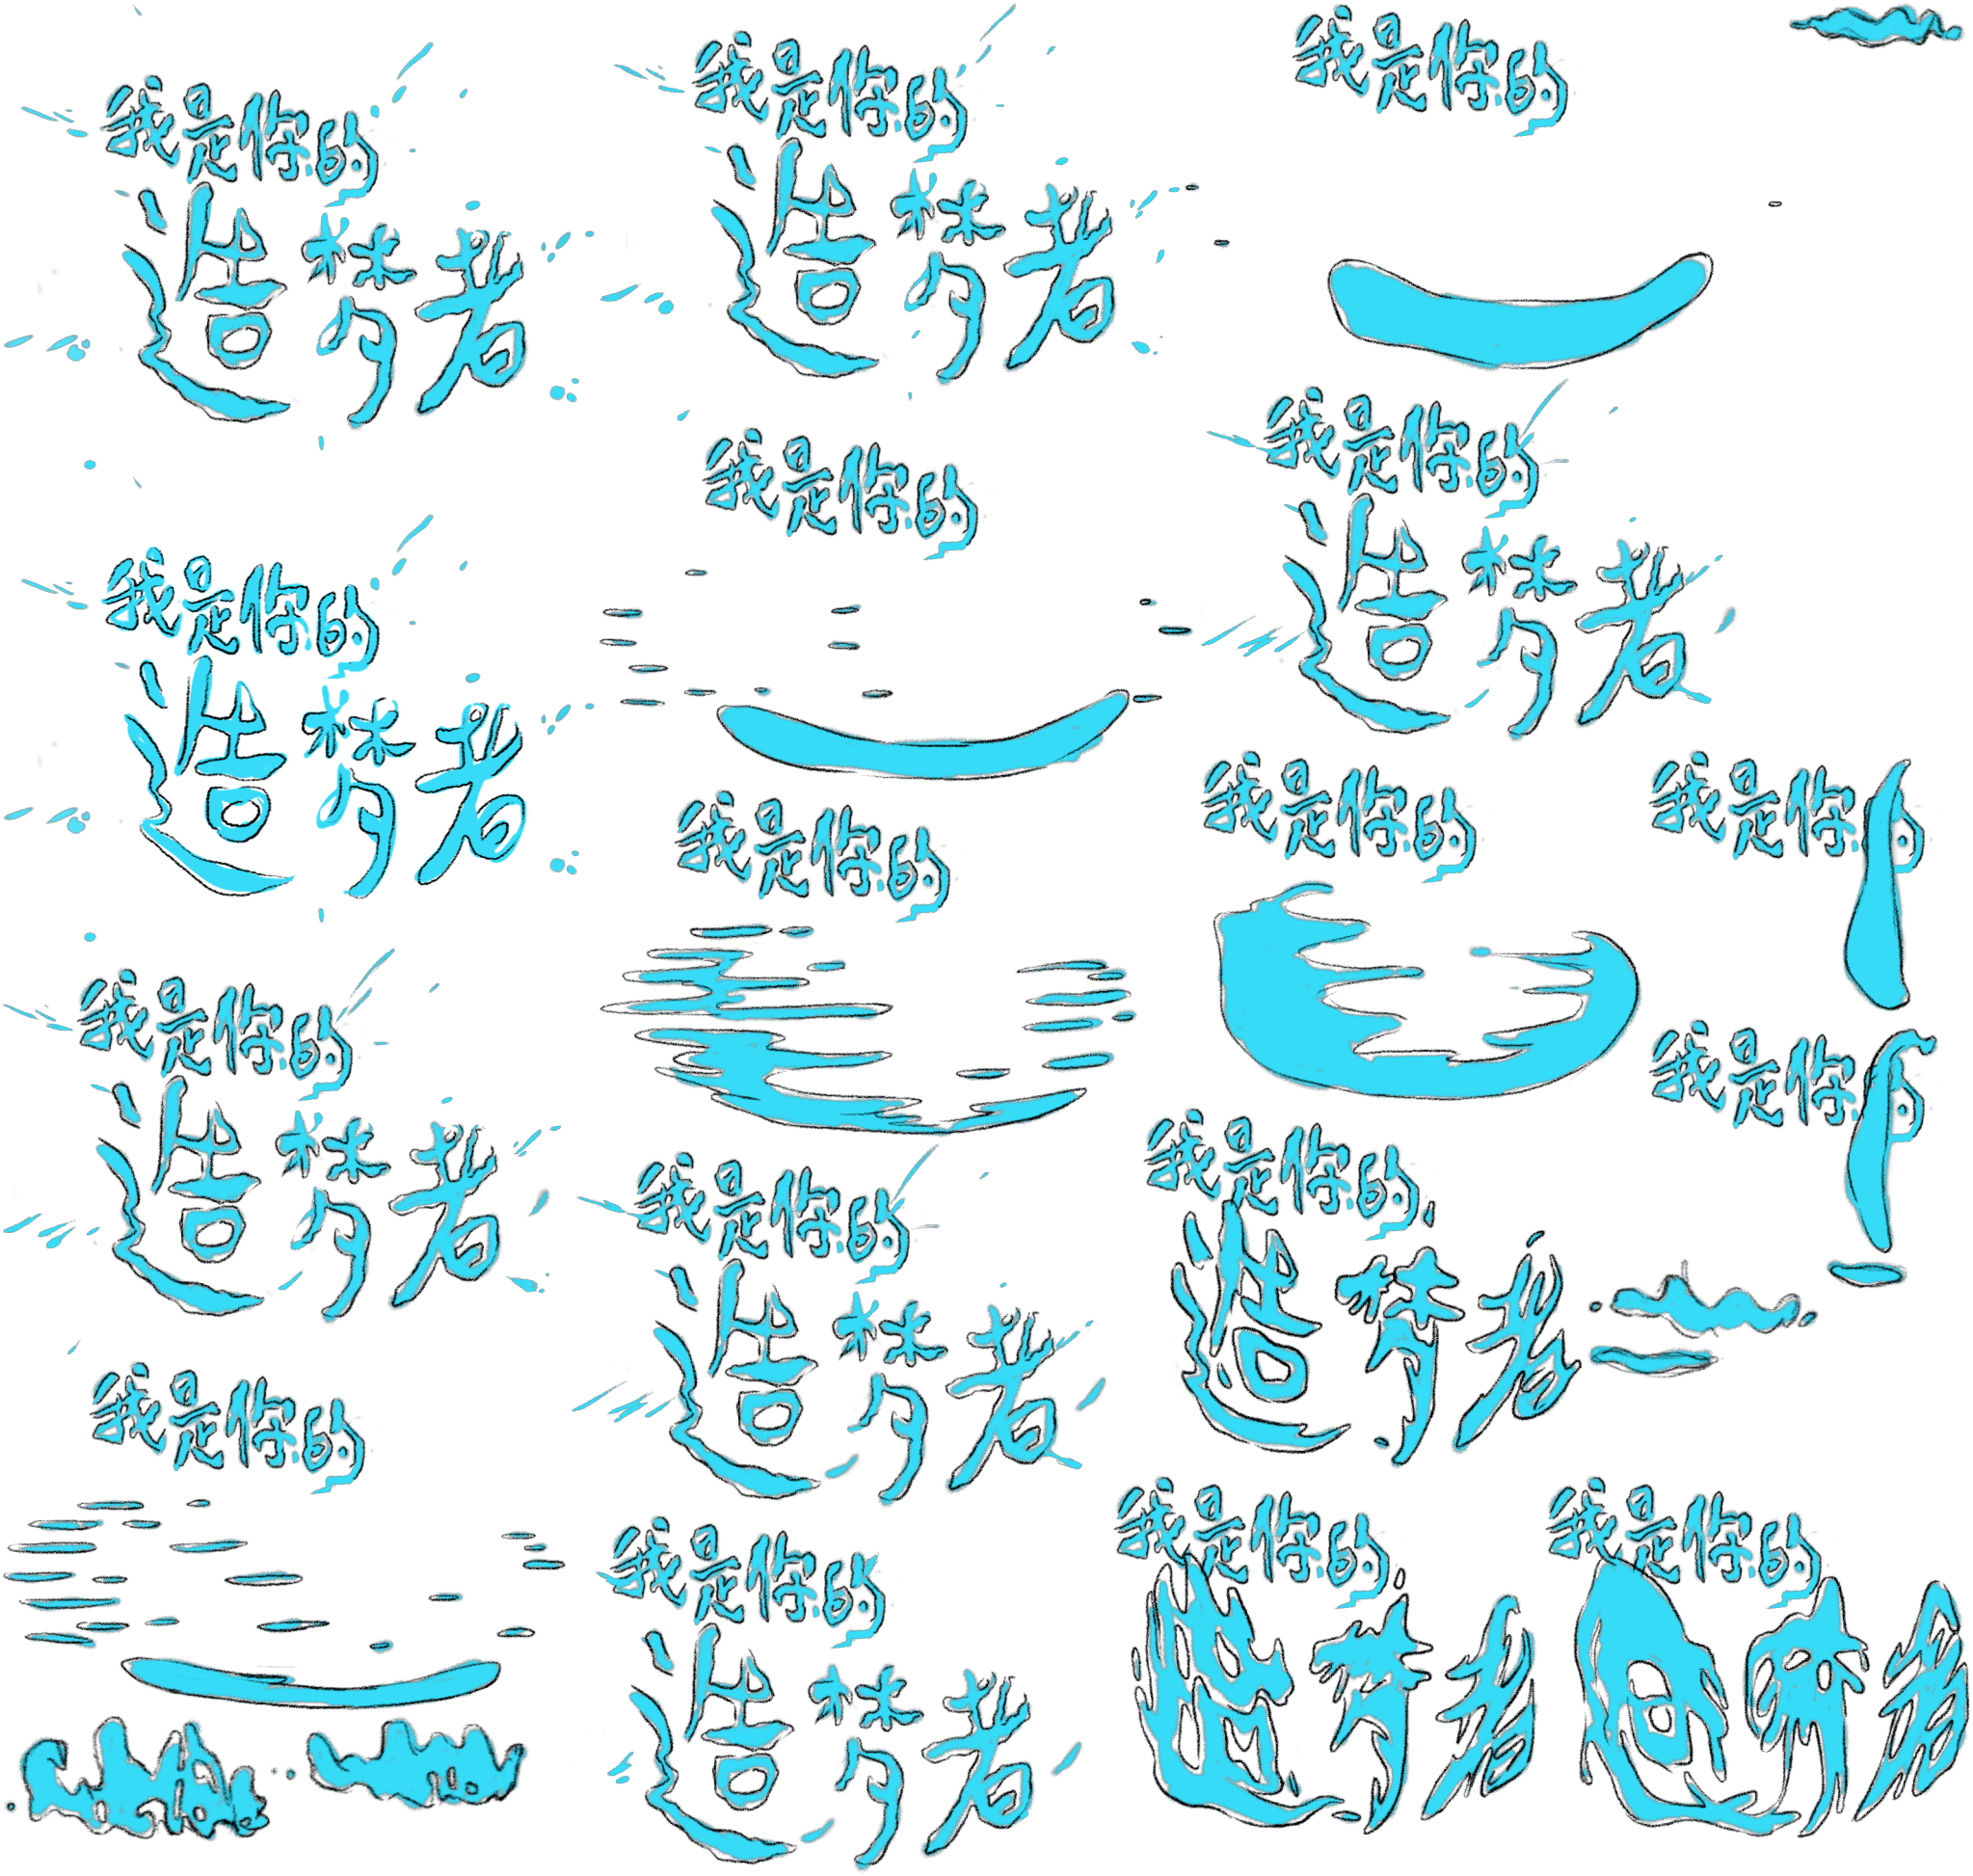 我是你的
造梦者
我是你的
造梦者
我是你的
造梦者
我是你的
我是你的
造梦者
我是你的
我是你的
我是你的
造梦者
我是你的
造梦者
我是你的
我是你的
造梦者
我是你的
我是你
我是你
我是你的
造梦者
我是你的
造梦者
我是你的